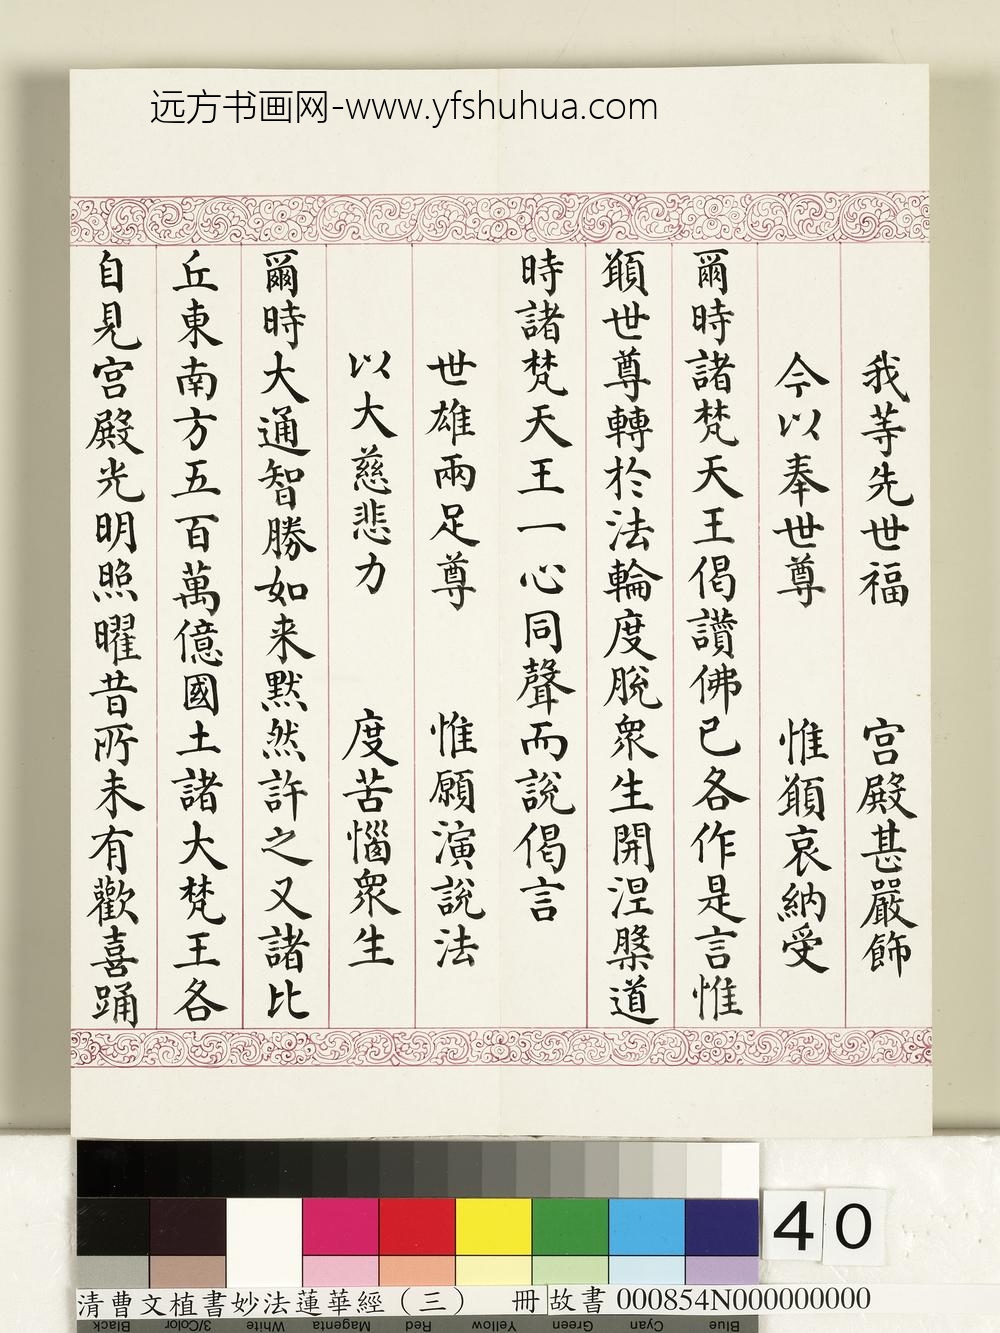 远方书画网-www.yfshuhua.com
我等先世福 宮殿甚嚴飾
今以奉世尊 惟顓哀納受
爾時諸梵天王偈讚佛已各作是言惟
顓世尊轉於法輪度脫眾生開涅槃道
時諸梵天王一心同聲而說偈言
世雄兩足尊 惟願演說法
以大慈悲力 度苦惱眾生
爾時大通智勝如来默然許之又諸比
丘東南方五百萬億國土諸大梵王各
自見宮殿光明照曜昔所未有歡喜踊
40
清曹文植書妙法蓮華經（三） 冊 故書 000854N000000000
Black 3/Color White Magenta Red Yellow Green Cyan Blue